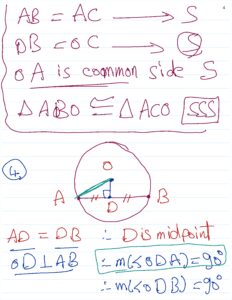 4
AB = AC → S
OB = OC → S
OA is common side S
△ABO ≅ △ACO SSS
4.
O
A D B
AD = DB ∴ D is midpoint
OD ⊥ AB ∴ m(<ODA) = 90°
∴ m(<ODB) = 90°